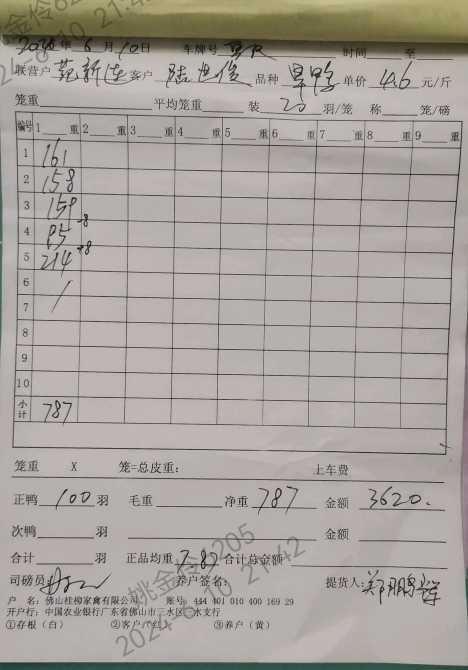 2024年6月10日 车牌号 时间 至
联营户 范新连 客户 陆世俊 品种 旱鸭 单价 4.6 元/斤
笼重 平均笼重 装 20 羽/笼 称 笼/磅
编号 1 重 2 重 3 重 4 重 5 重 6 重 7 重 8 重 9 重
1 161
2 158
3 159
4 95 -8
5 214 +8
6 /
7
8
9
10
小计 787
笼重 X 笼=总皮重: 上车费
正鸭 100 羽 毛重 净重 787 金额 3620.
次鸭 羽 金额
合计 羽 正品均重 7.87 合计总金额
司磅员 养户签名: 提货人: 郑鹏辉
户 名: 佛山桂柳家禽有限公司 账号 444 401 010 400 169 29
开户行: 中国农业银行广东省佛山市三水区 水支行
①存根(白) ②客户(红) ③养户(黄)
姚金伶205
2024-6-10 21:42